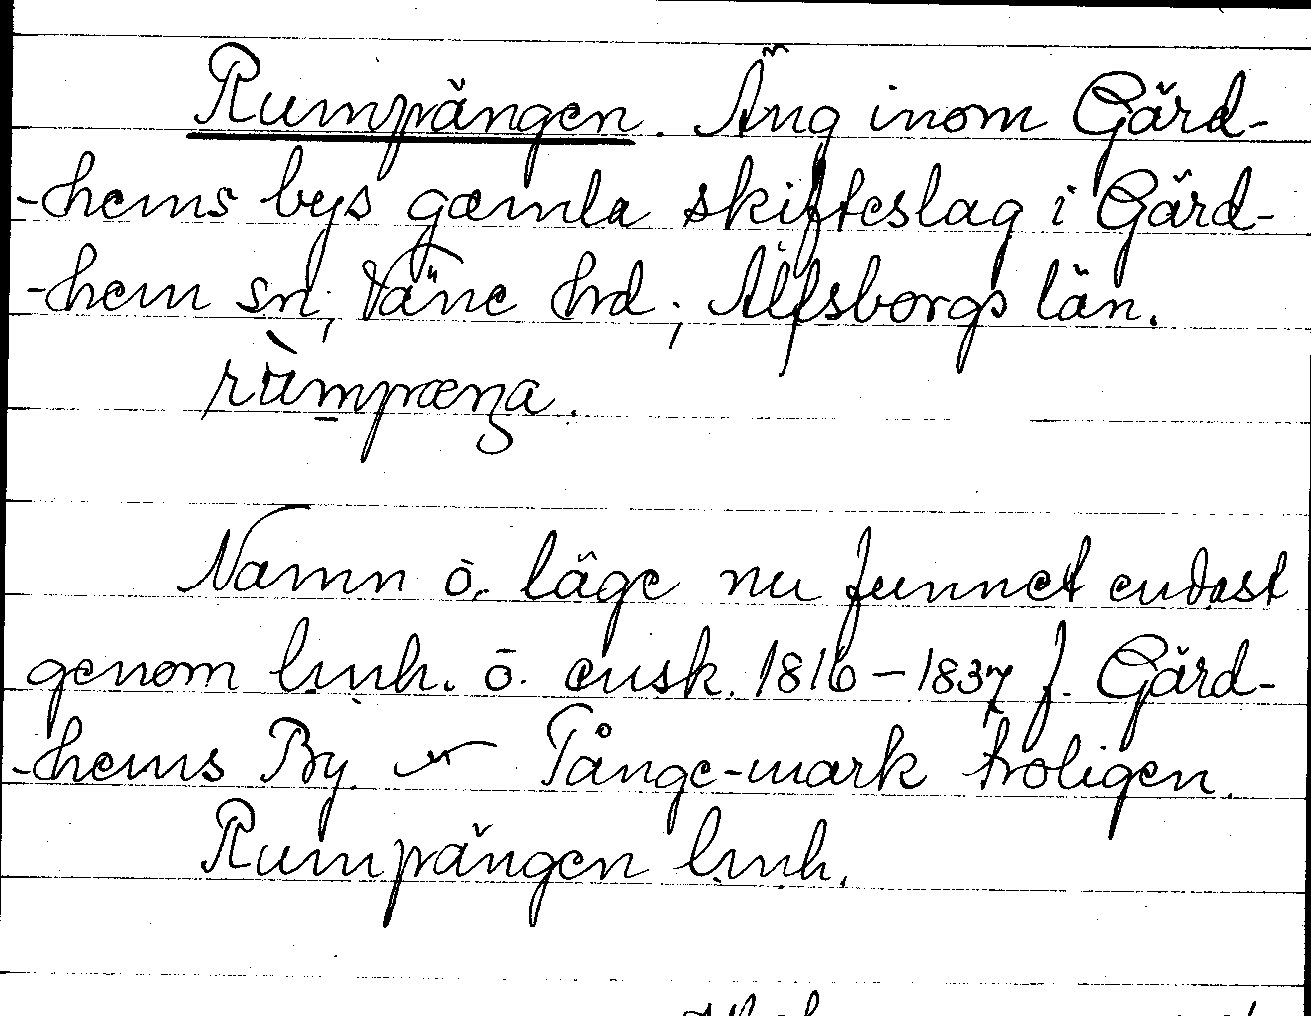 Rumpängen. Äng inom Gärd-
-hems bys gamla skifteslag i Gärd-
-hem sn; Väne hd; Älfsborgs län.
rùmpæŋa.
Namn o. läge nu funnet endast
genom lmh. o. ensk. 1816-1837 f. Gärd-
-hems By. Tånge-mark troligen.
Rumpängen lmh.